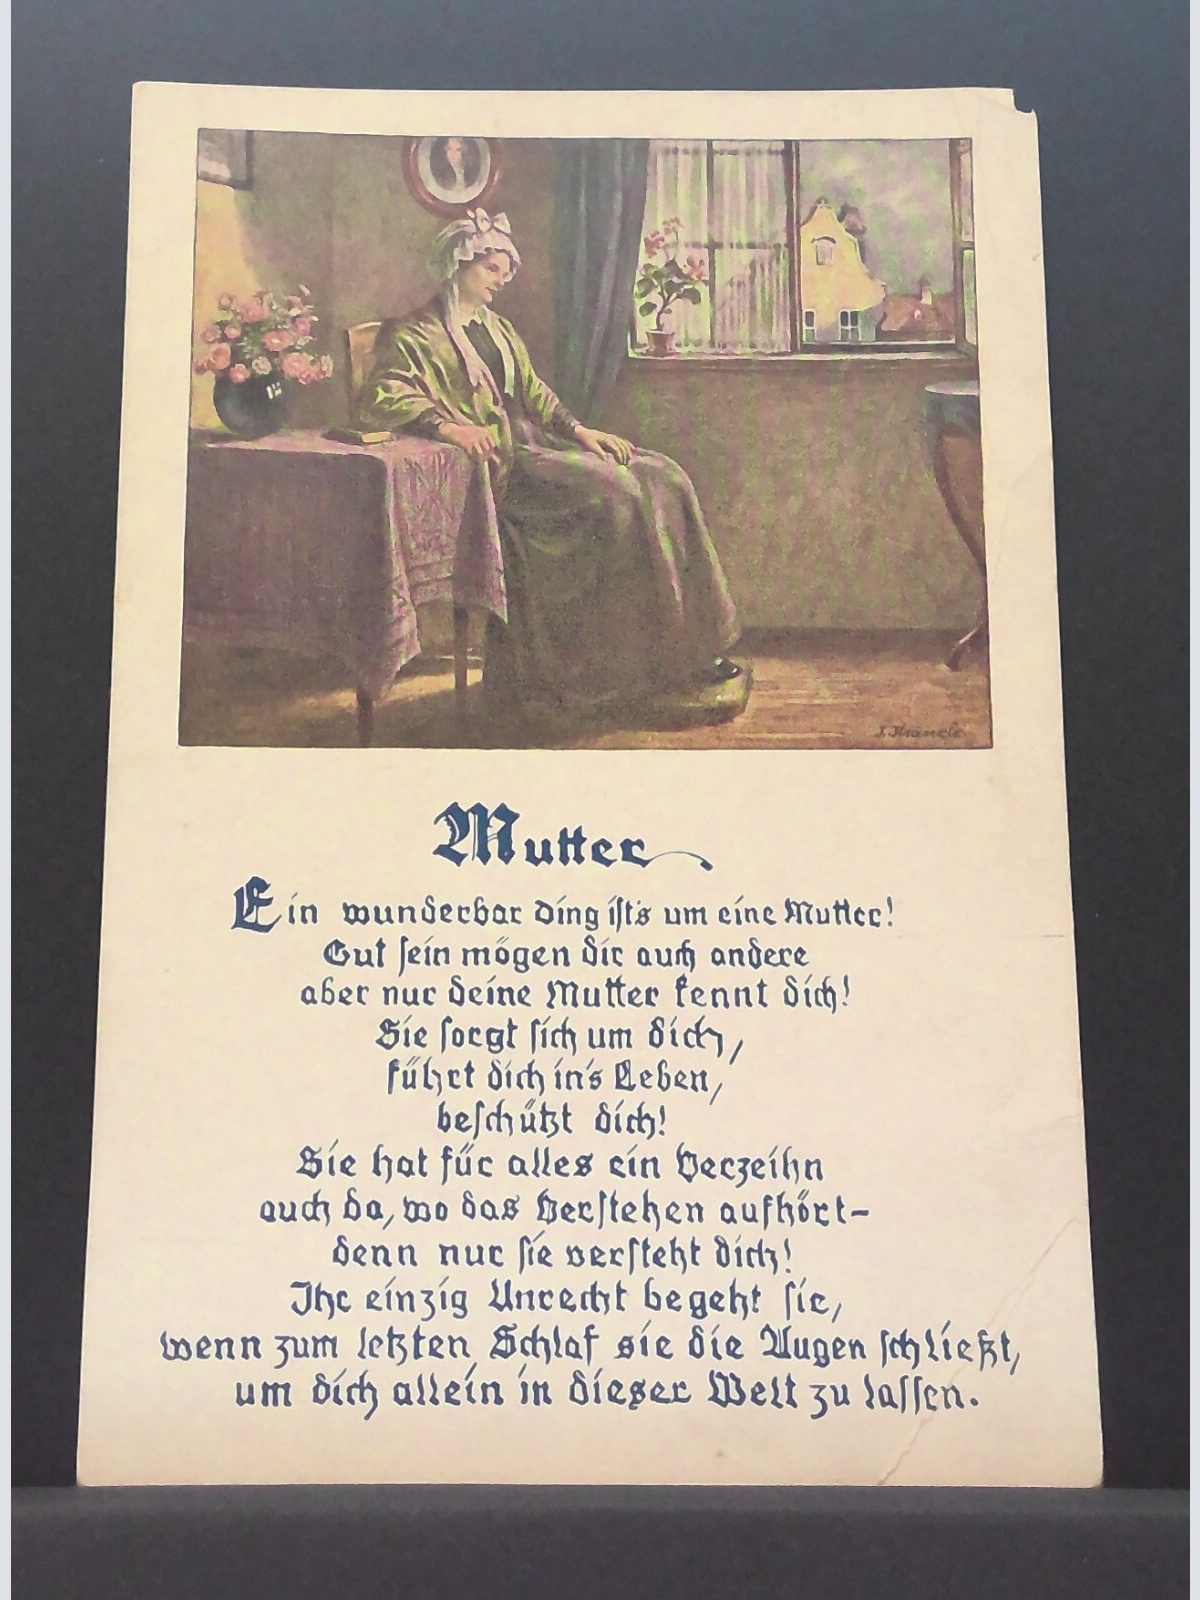 Mutter
Ein wunderbar Ding ist's um eine Mutter!
Gut sein mögen dir auch andere
aber nur deine Mutter kennt dich!
Sie sorgt sich um dich,
führt dich in's Leben,
beschützt dich!
Sie hat für alles ein Verzeihn
auch da, wo das Verstehen aufhört-
denn nur sie versteht dich!
Ihr einzig Unrecht begeht sie,
wenn zum letzten Schlaf sie die Augen schließt,
um dich allein in dieser Welt zu lassen.